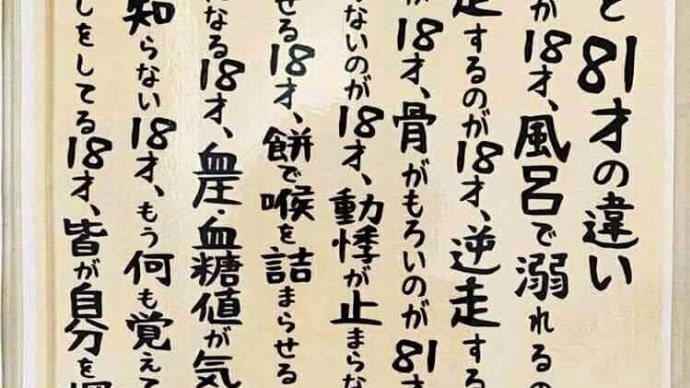 と81才の違い
が18才、風呂で溺れるの
走するのが18才、逆走する
が18才、骨がもろいのが81才
ないのが18才、動悸が止まらな
せる18才、餅で喉を詰まらせる
なる18才、血圧・血糖値が気
知らない18才、もう何も覚えて
しをしてる18才、皆が自分を